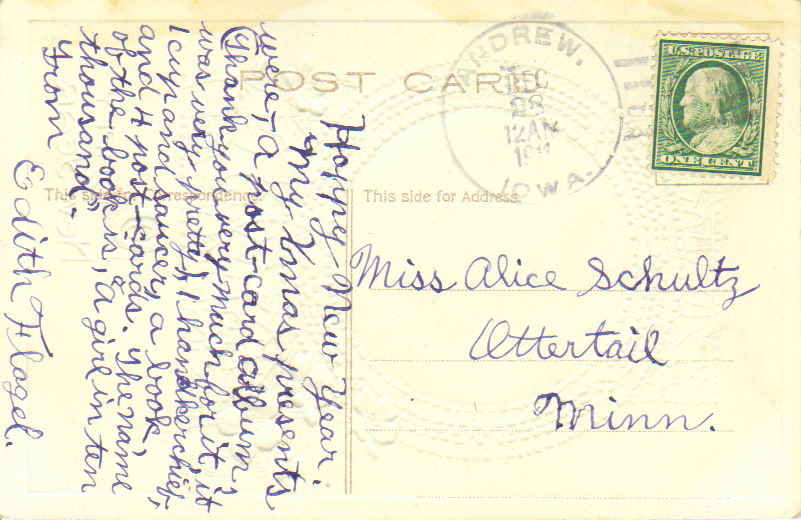 POST CARD
ANDREW.
DEC
28
12AM
191
IOWA.
U.S. POSTAGE
ONE CENT
This side for Correspondence.
This side for Address.
Miss Alice Schultz
Ottertail
Minn.
Happy New Year.
My Xmas presents
were, a post-card album,
(Thank you very much for it, it
was very pretty), 1 handkerchief,
1 cup and saucer, a book,
and 4 post-cards. The name
of the book is, "A girl in ten
thousand".
From
Edith Flagel.